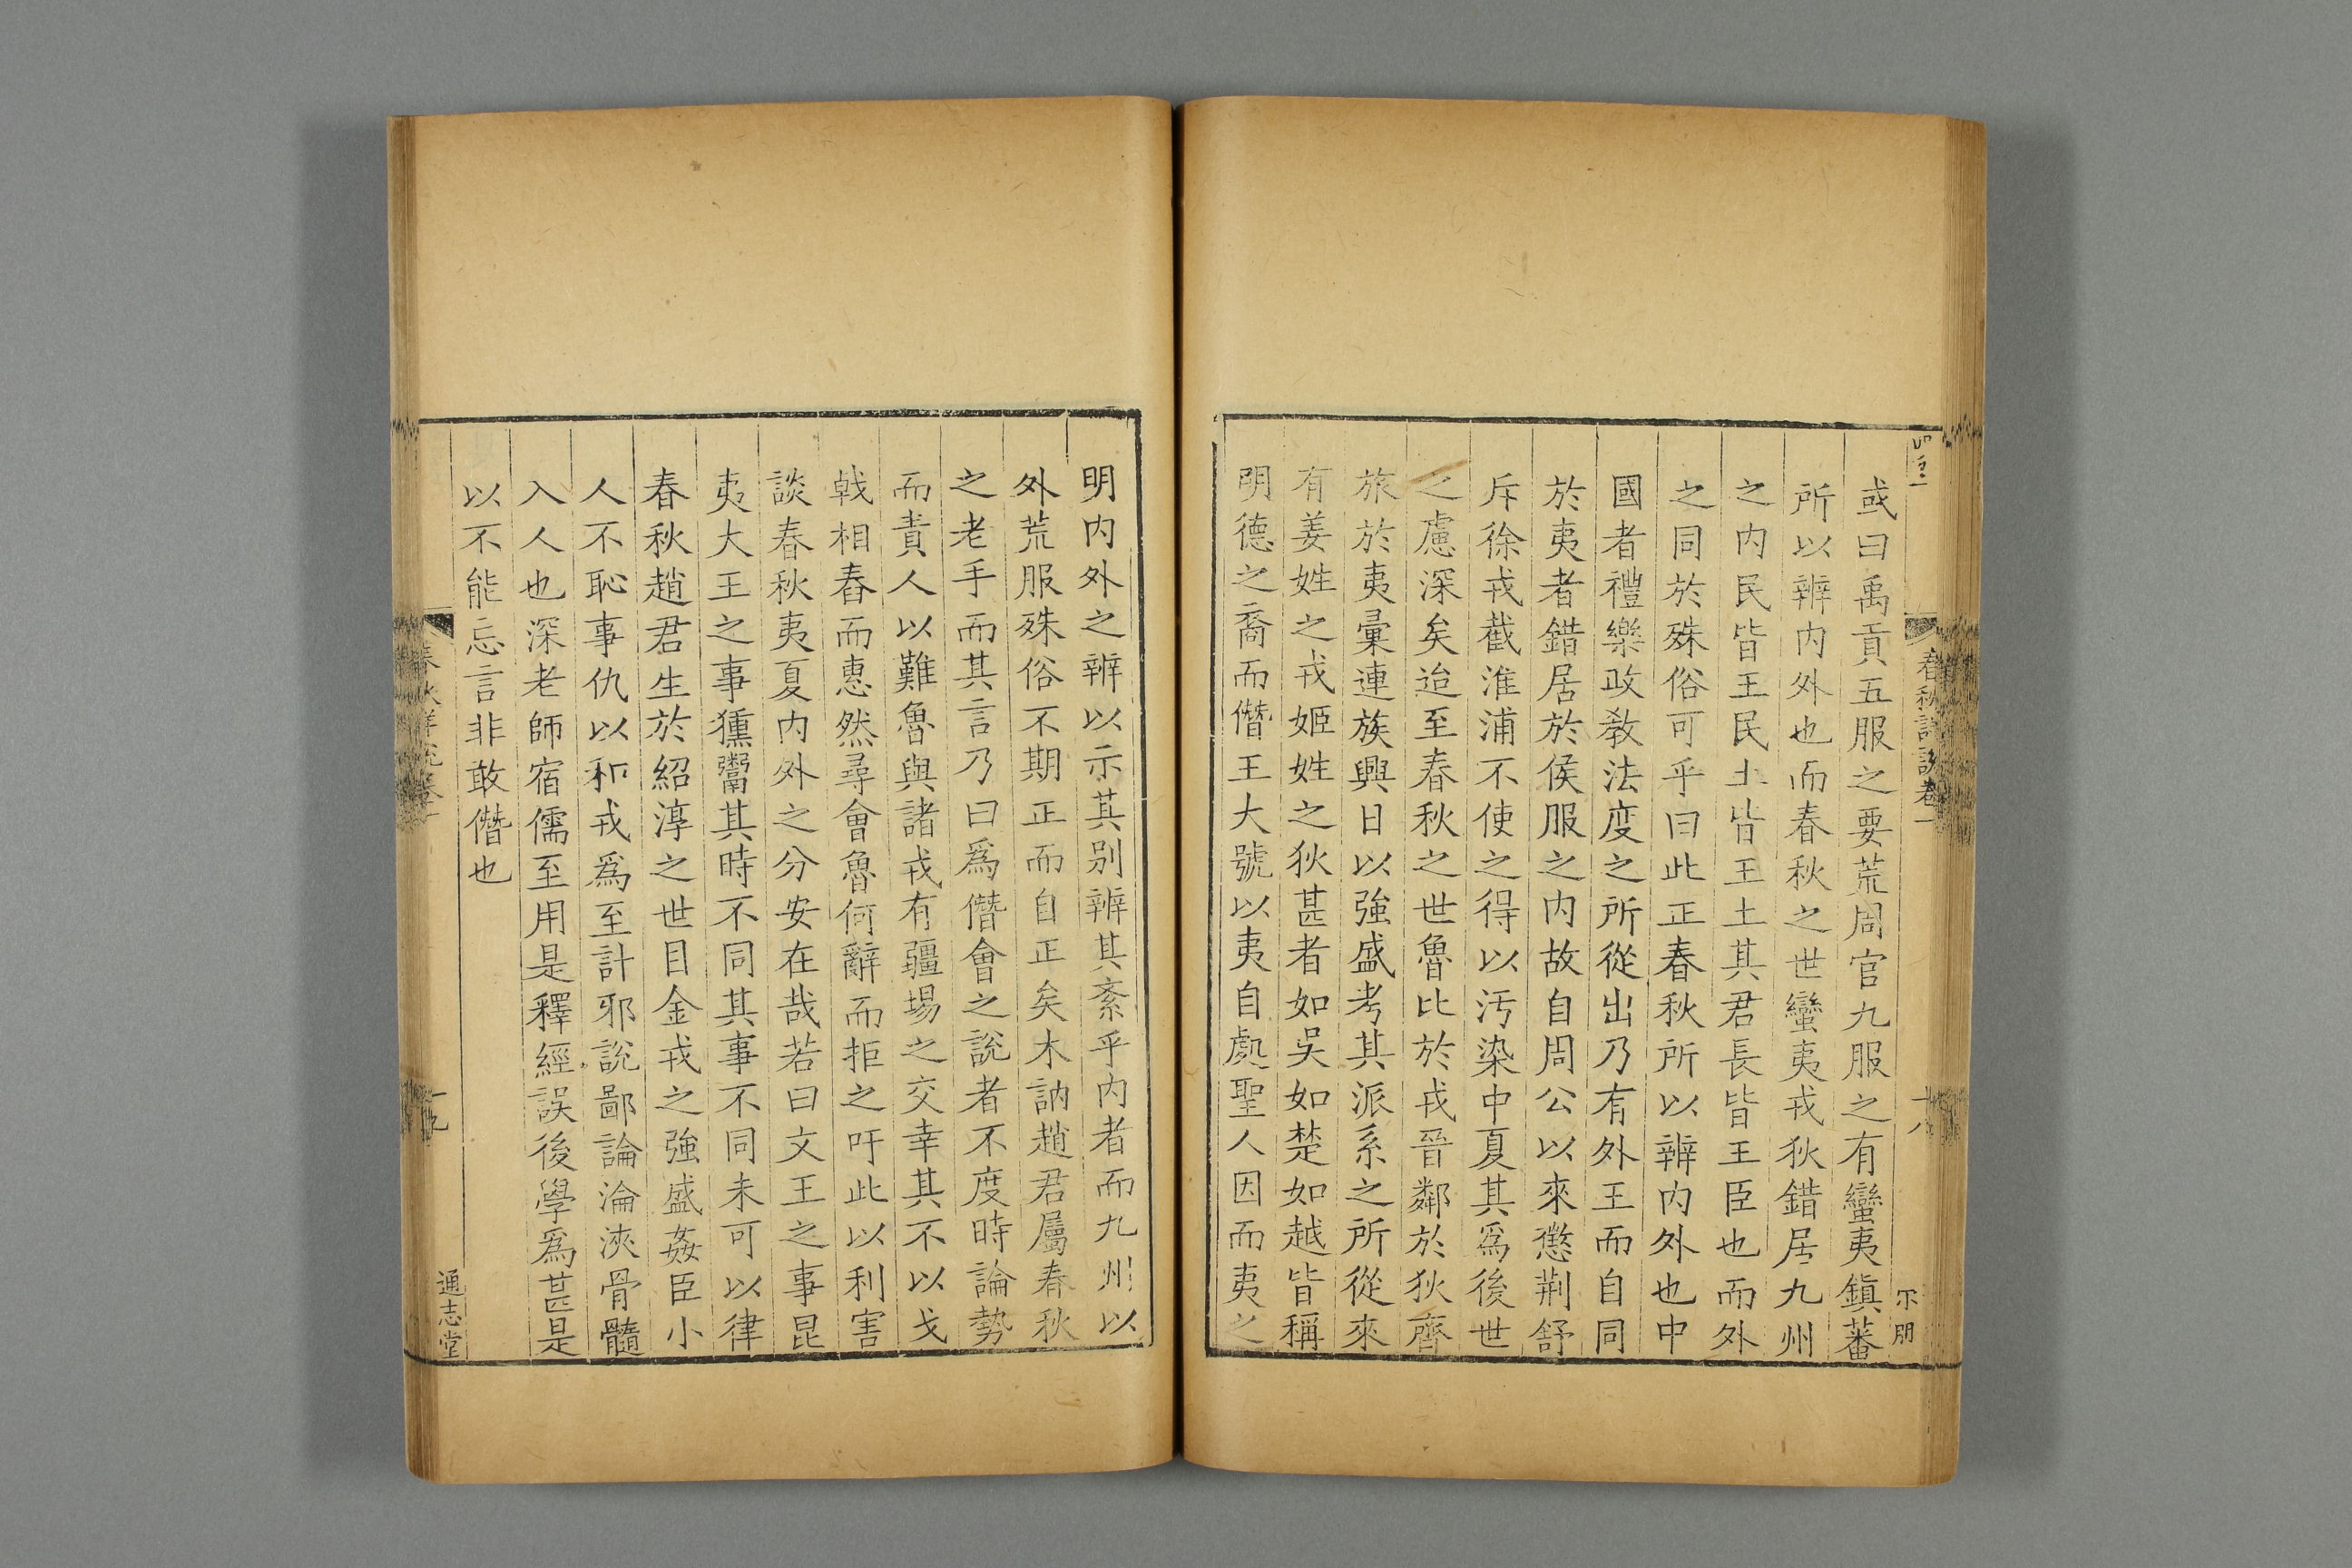 春秋詳說卷一
十八
或曰禹貢五服之要荒周官九服之有蠻夷鎮蕃
所以辨內外也而春秋之世蠻夷戎狄錯居九州
之內民皆王民土皆王土其君長皆王臣也而外
之同於殊俗可乎曰此正春秋所以辨內外也中
國者禮樂政教法度之所從出乃有外王而自同
於夷者錯居於侯服之內故自周公以來懲荆舒
斥徐戎截淮浦不使之得以汚染中夏其爲後世
之慮深矣迨至春秋之世魯比於戎晉鄰於狄齊
旅於夷彙連族興日以強盛考其派系之所從來
有姜姓之戎姬姓之狄甚者如吳如楚如越皆稱
明德之裔而僭王大號以夷自處聖人因而夷之
明內外之辨以示其别辨其紊乎內者而九州以
外荒服殊俗不期正而自正矣木訥趙君屬春秋
之老手而其言乃曰爲僭會之說者不度時論勢
而責人以難魯與諸戎有疆埸之交幸其不以戈
戟相舂而惠然尋會魯何辭而拒之吁此以利害
談春秋夷夏內外之分安在哉若曰文王之事昆
夷大王之事獯鬻其時不同其事不同未可以律
春秋趙君生於紹淳之世目金戎之強盛姦臣小
人不恥事仇以和戎爲至計邪說鄙論淪浹骨髓
入人也深老師宿儒至用是釋經誤後學爲甚是
以不能忘言非敢僭也
春秋詳說卷一
十九
通志堂